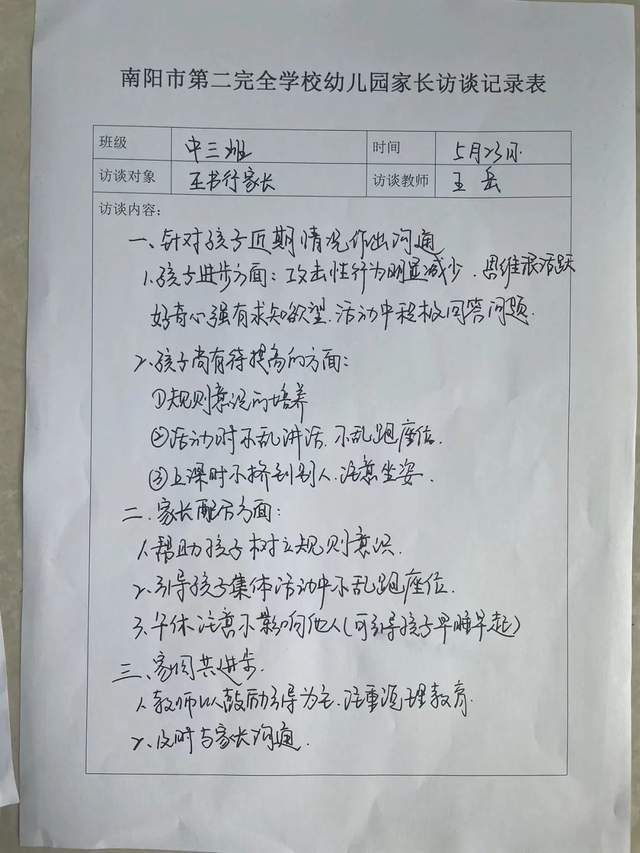 南阳市第二完全学校幼儿园家长访谈记录表
班级 中三班 时间 5月23日
访谈对象 王书行家长 访谈教师 王岳
访谈内容：
一、针对孩子近期情况作出沟通
1.孩子进步方面：攻击性行为明显减少，思维很活跃
好奇心强有求知欲望，活动中积极回答问题.
2.孩子尚有待提高的方面：
①规则意识的培养
②活动时不乱讲话，不乱跑座位.
③上课时不挤到别人，注意坐姿.
二.家长配合方面：
1.帮助孩子树立规则意识.
2.引导孩子集体活动中不乱跑座位.
3.午休注意不影响他人(可引导孩子早睡早起)
三、家园共进步.
1.教师以鼓励引导为主，注重 理教育.
2.及时与家长沟通.